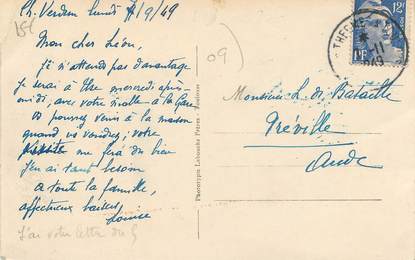 Ch. Verdun lundi 7/9/49
Mon cher Léon,
Je n'attends pas d'avantage
Je serai à Usse mercredi après-
midi, avec votre malle à la Gare
vs pourrez venir à la maison
quand vs voudrez, votre
me fera du bien
J'en ai tant besoin
à toute la famille,
affectueux baisers
Louise
J'ai votre lettre du 5
09
Phototypie Labouche Frères - Toulouse
12F
1949
Monsieur L. de Bataille
Préville
Aude